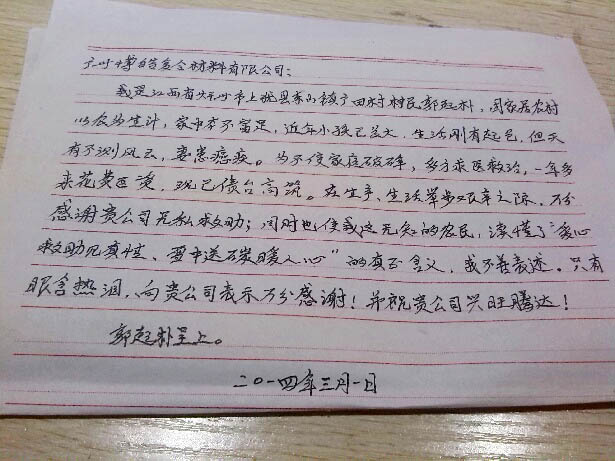 广州博皓复合材料有限公司：
我是江西省赣州市上犹县东山镇广田村村民郭起朴，因家居农村
以农为生计，家中本不富足，近年小孩已长大，生活刚有起色，但天
有不测风云，妻患癌疾。为不使家庭破碎，多方求医救治，一年多
来花费医资，现已债台高筑。在生产、生活举步艰辛之际，万分
感谢贵公司无私救助；同时也使我这无知的农民，读懂了“爱心
救助见真情，雪中送碳暖人心”的真正含义，我不善表述。只有
眼含热泪，向贵公司表示万分感谢！并祝贵公司兴旺腾达！
郭起朴呈上。
二〇一四年三月一日